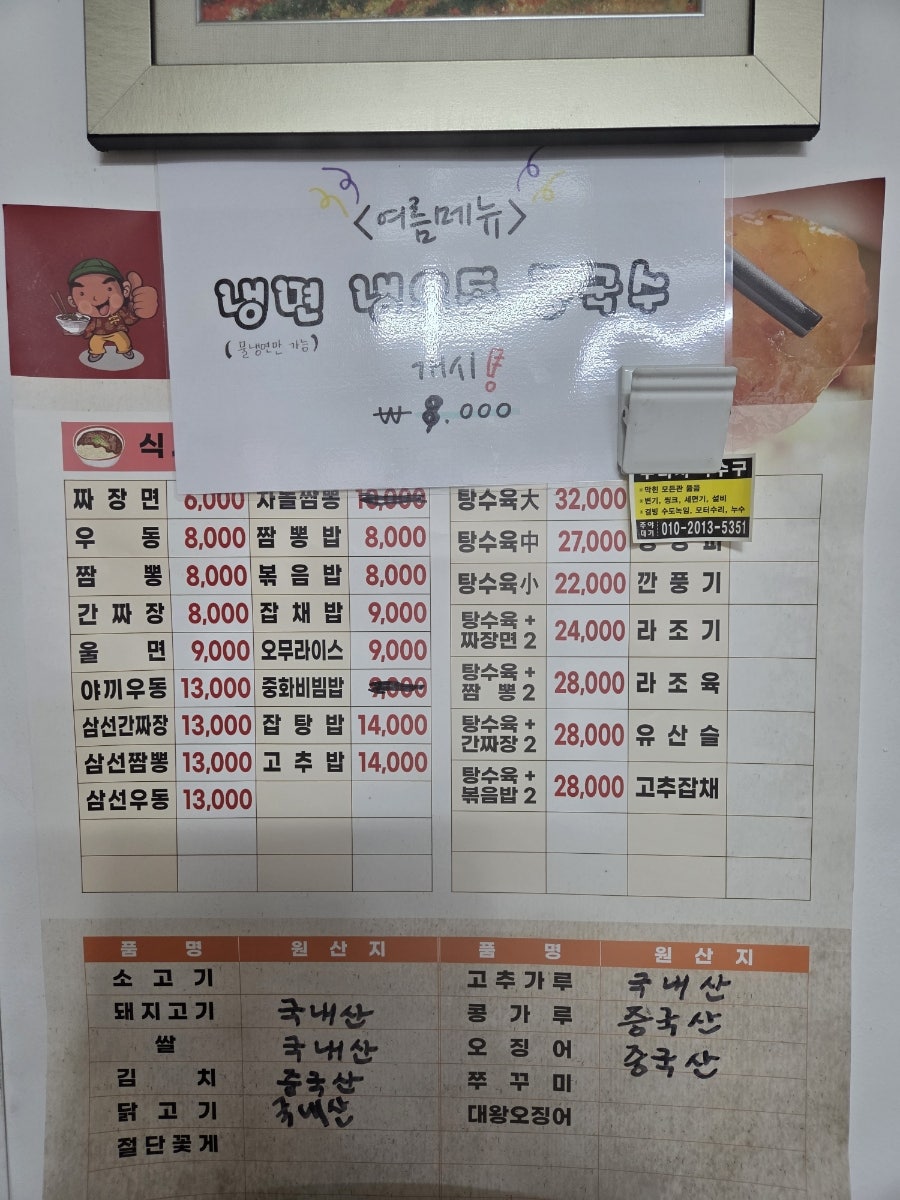 <여름메뉴>
냉면 냉우동 콩국수
(물냉면만 가능)
개시!
₩ 8.000
식
짜장면 6,000 차돌짬뽕 10,000 탕수육大 32,000
우동 8,000 짬뽕밥 8,000 탕수육中 27,000
짬뽕 8,000 볶음밥 8,000 탕수육小 22,000 깐풍기
간짜장 8,000 잡채밥 9,000 탕수육+짜장면2 24,000 라조기
울면 9,000 오무라이스 9,000 탕수육+짬뽕2 28,000 라조육
야끼우동 13,000 중화비빔밥 9,000 탕수육+간짜장2 28,000 유산슬
삼선간짜장 13,000 잡탕밥 14,000 탕수육+볶음밥2 28,000 고추잡채
삼선짬뽕 13,000 고추밥 14,000
삼선우동 13,000
막힌 모든관 뚫음
변기, 씽크, 세면기, 설비
걸빙 수도녹임, 모터수리, 누수
주야대기 010-2013-5351
품명 원산지 품명 원산지
소고기 고추가루 국내산
돼지고기 국내산 콩가루 중국산
쌀 국내산 오징어 중국산
김치 중국산 쭈꾸미
닭고기 국내산 대왕오징어
절단꽃게